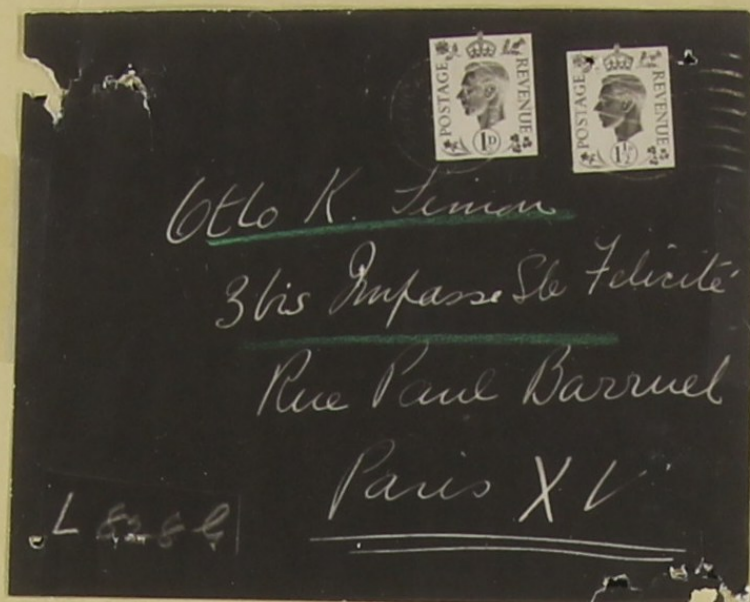 POSTAGE REVENUE 1D
POSTAGE REVENUE 1½D
Otto K. Simon
3bis Impasse Ste Félicité
Rue Paul Barruel
Paris XV
L